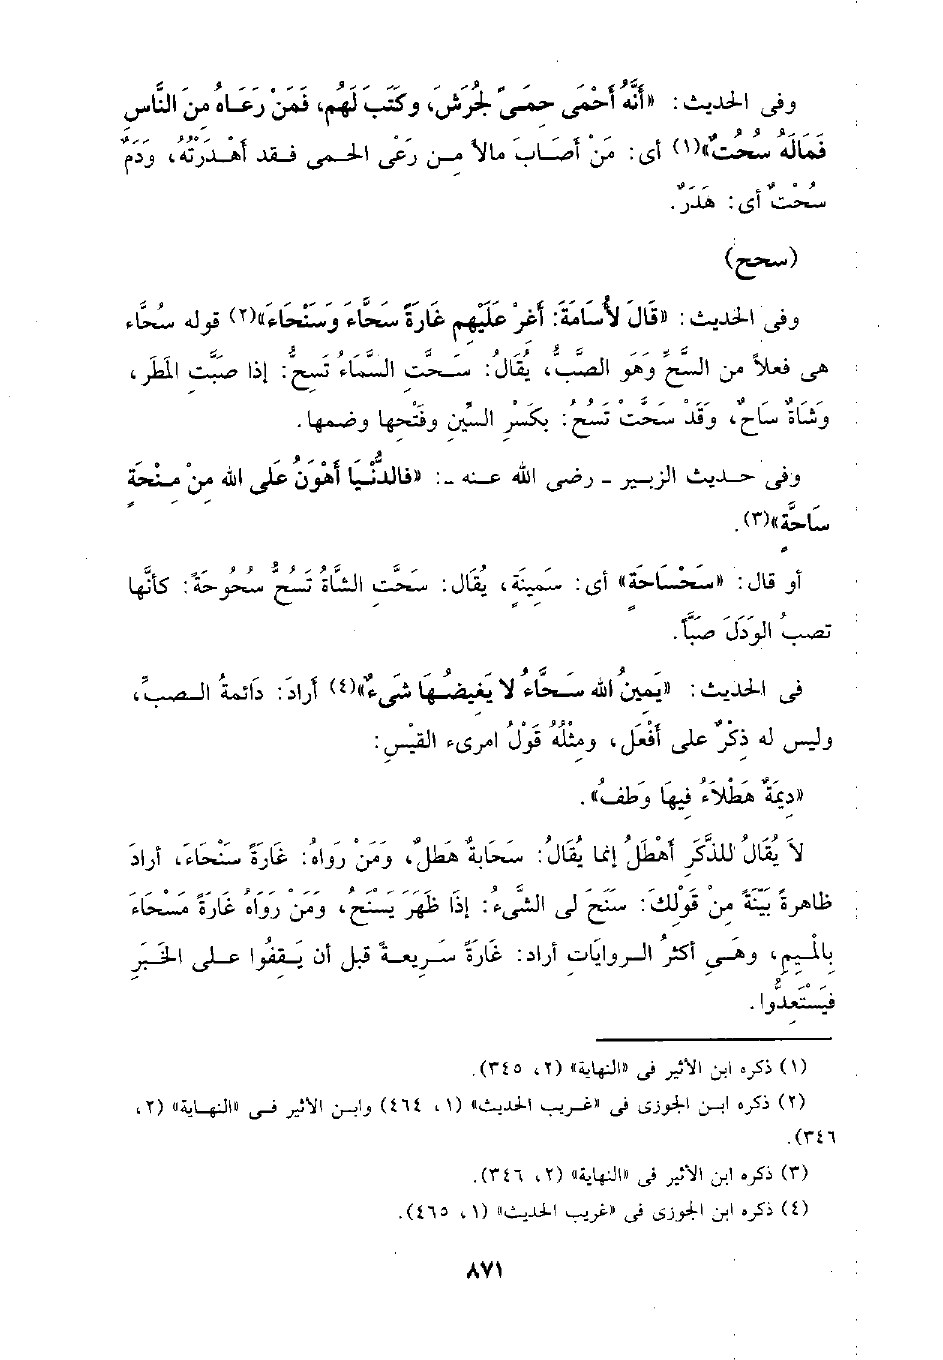 وفى الحديث: «أَنَّهُ أَحْمَى حِمَىً لِجُرَشَ، وكَتَبَ لَهُم، فَمَنْ رَعَاهُ مِنَ النَّاسِ
فَمَالُهُ سُحُتٌ»(١) أى: مَنْ أصَابَ مالاً مِن رَعَى الحِمى فقد أَهْدَرْتُهُ، ودَمٌ
سُحْتٌ أى: هَدَرٌ.
(سحح)
وفى الحديث: «قَالَ لأُسَامَةَ: أَغِرْ عَلَيْهِم غَارَةً سَحَّاءَ وَسَنْحَاءَ»(٢) قوله سُحَّاء
هى فعلاً من السَّحِّ وَهَوَ الصَّبُّ، يقَالُ: سَحَّتِ السَّمَاءُ تَسِحُّ: إذا صَبَّتِ المَطَر،
وَشَاةٌ سَاحٌ، وَقَدْ سَحَّتْ تَسُحُ: بِكَسْرِ السِّينِ وفَتْحِها وضمها.
وفى حديث الزبير - رضى الله عنه -: «فالدُّنْيَا أهْوَنُ عَلى الله مِنْ مِنْحَةٍ
سَاحَّةٍ»(٣).
أو قال: «سَحْسَاحَةٍ» أى: سَمِينَةٍ، يُقَال: سَحَّتِ الشَّاةُ تَسُحُّ سُحُوحَةً: كأنَّها
تصبُ الوَدَلَ صَبَّاً.
فى الحديث: «يَمِينُ الله سَحَّاءُ لا يَغيضُهَا شَىءٌ»(٤) أرادَ: دَائمةُ الصبِّ،
وليس له ذِكْرٌ على أَفْعَل، ومثْلُهُ قَوْلُ امرىء القيْسِ:
«دِيمَةٌ هَطْلاَءُ فِيهَا وَطفُ».
لاَ يُقَالُ للذَّكَرِ أهْطَلُ إنما يُقَالُ: سَحَابةٌ هَطلٌ، ومَنْ رَواهُ: غَارَةً سَنْحَاءَ، أرادَ
ظاهرةً بَيّنَةً مِنْ قَوْلِكَ: سَنَحَ لى الشَّىءُ: إذَا ظَهَرَ يَسْنَحُ، ومَنْ رَوَاهُ غَارَةً مَسْحَاءَ
بِالْمِيمِ، وهَىِ أكثرُ الروايَاتِ أراد: غَارَةً سَرِيعةً قبل أن يَقِفُوا على الخَبَرِ
فيَسْتَعِدُّوا.
(١) ذكره ابن الأثير فى «النهاية» (٢، ٣٤٥).
(٢) ذكره ابن الجوزى فى «غريب الحديث» (١، ٤٦٤) وابن الأثير فى «النهاية» (٢،
٣٤٦).
(٣) ذكره ابن الأثير فى «النهاية» (٢، ٣٤٦).
(٤) ذكره ابن الجوزى فى «غريب الحديث» (١، ٤٦٥).
٨٧١